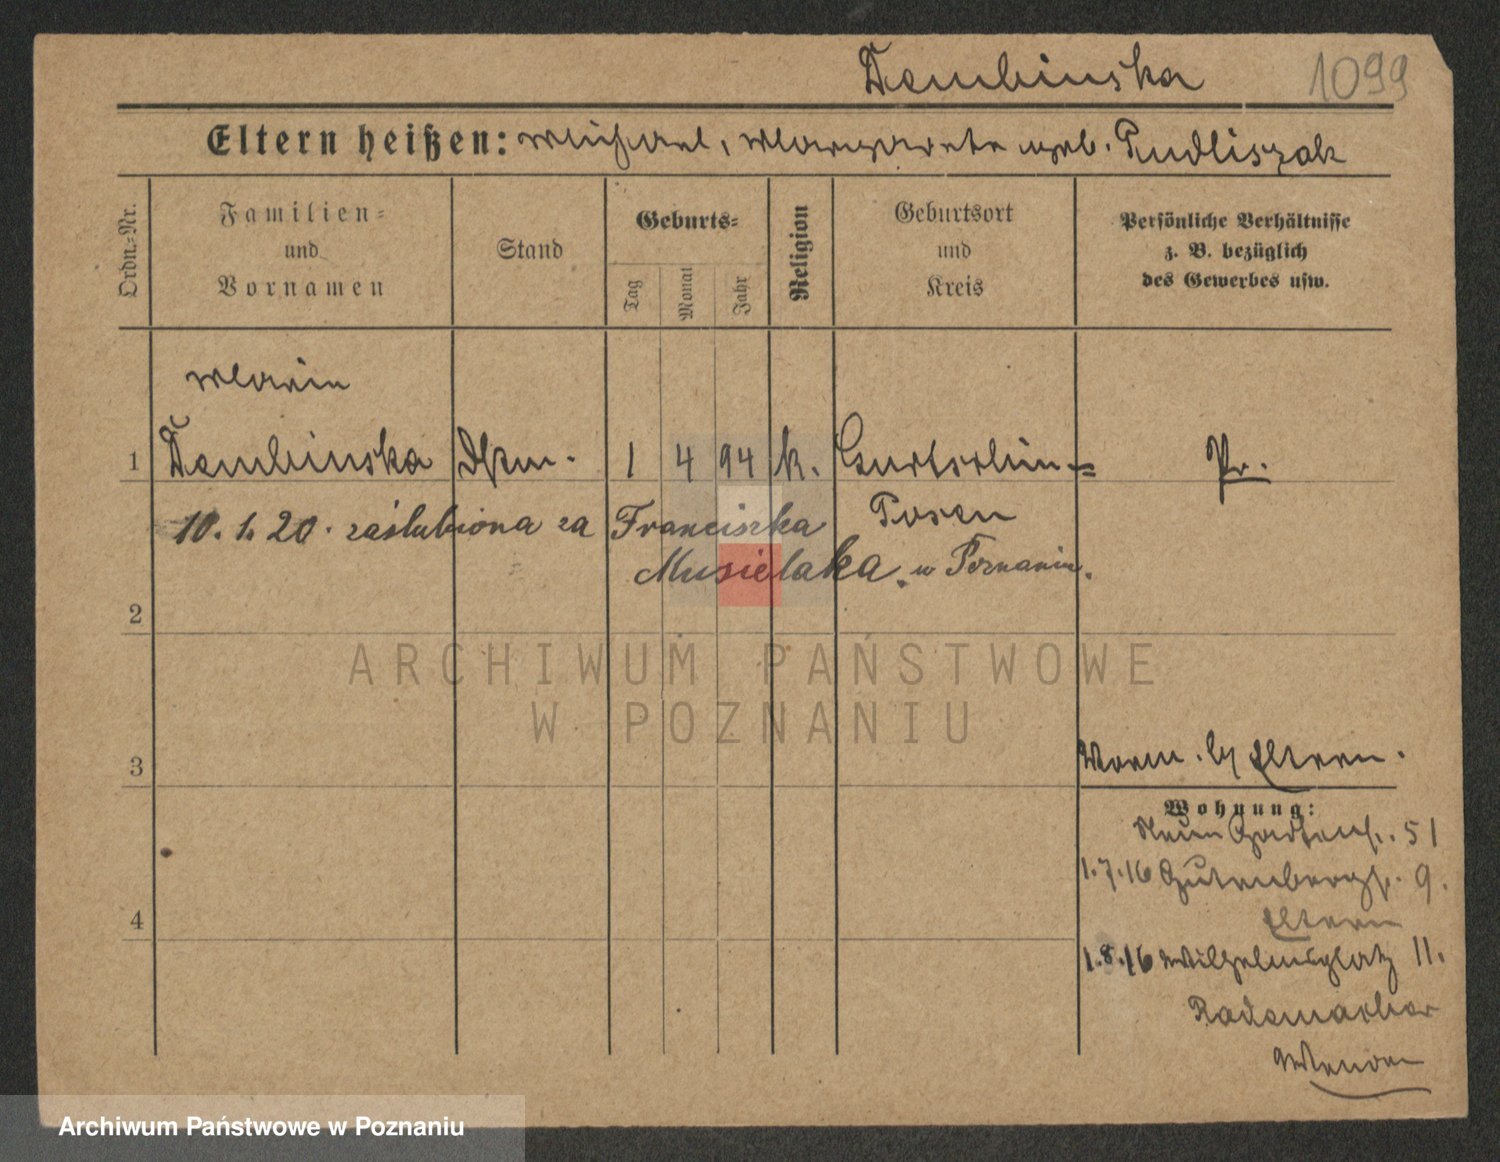 Dembinska 1099
Eltern heißen: Michael, Margarete geb. Pudliszak
Ordn.-Nr.
Familien-
und
Vornamen
Stand
Geburts-
Tag
Monat
Jahr
Religion
Geburtsort
und
Kreis
Persönliche Verhältnisse
z. B. bezüglich
des Gewerbes usw.
Marie
1 Dembinska 1 4 94 k. Pr.
Posen
10. 1. 20. zaślubiona za Franciszka
Musielaka w Poznaniu.
2
ARCHIWUM PAŃSTWOWE
W POZNANIU
3
Eltern.
Wohnung:
Neue Gartenstr. 51
1.7.16 Gutenbergstr. 9.
Eltern
4
1.8.16 Wilhelmsplatz 11.
Rademacher
Archiwum Państwowe w Poznaniu